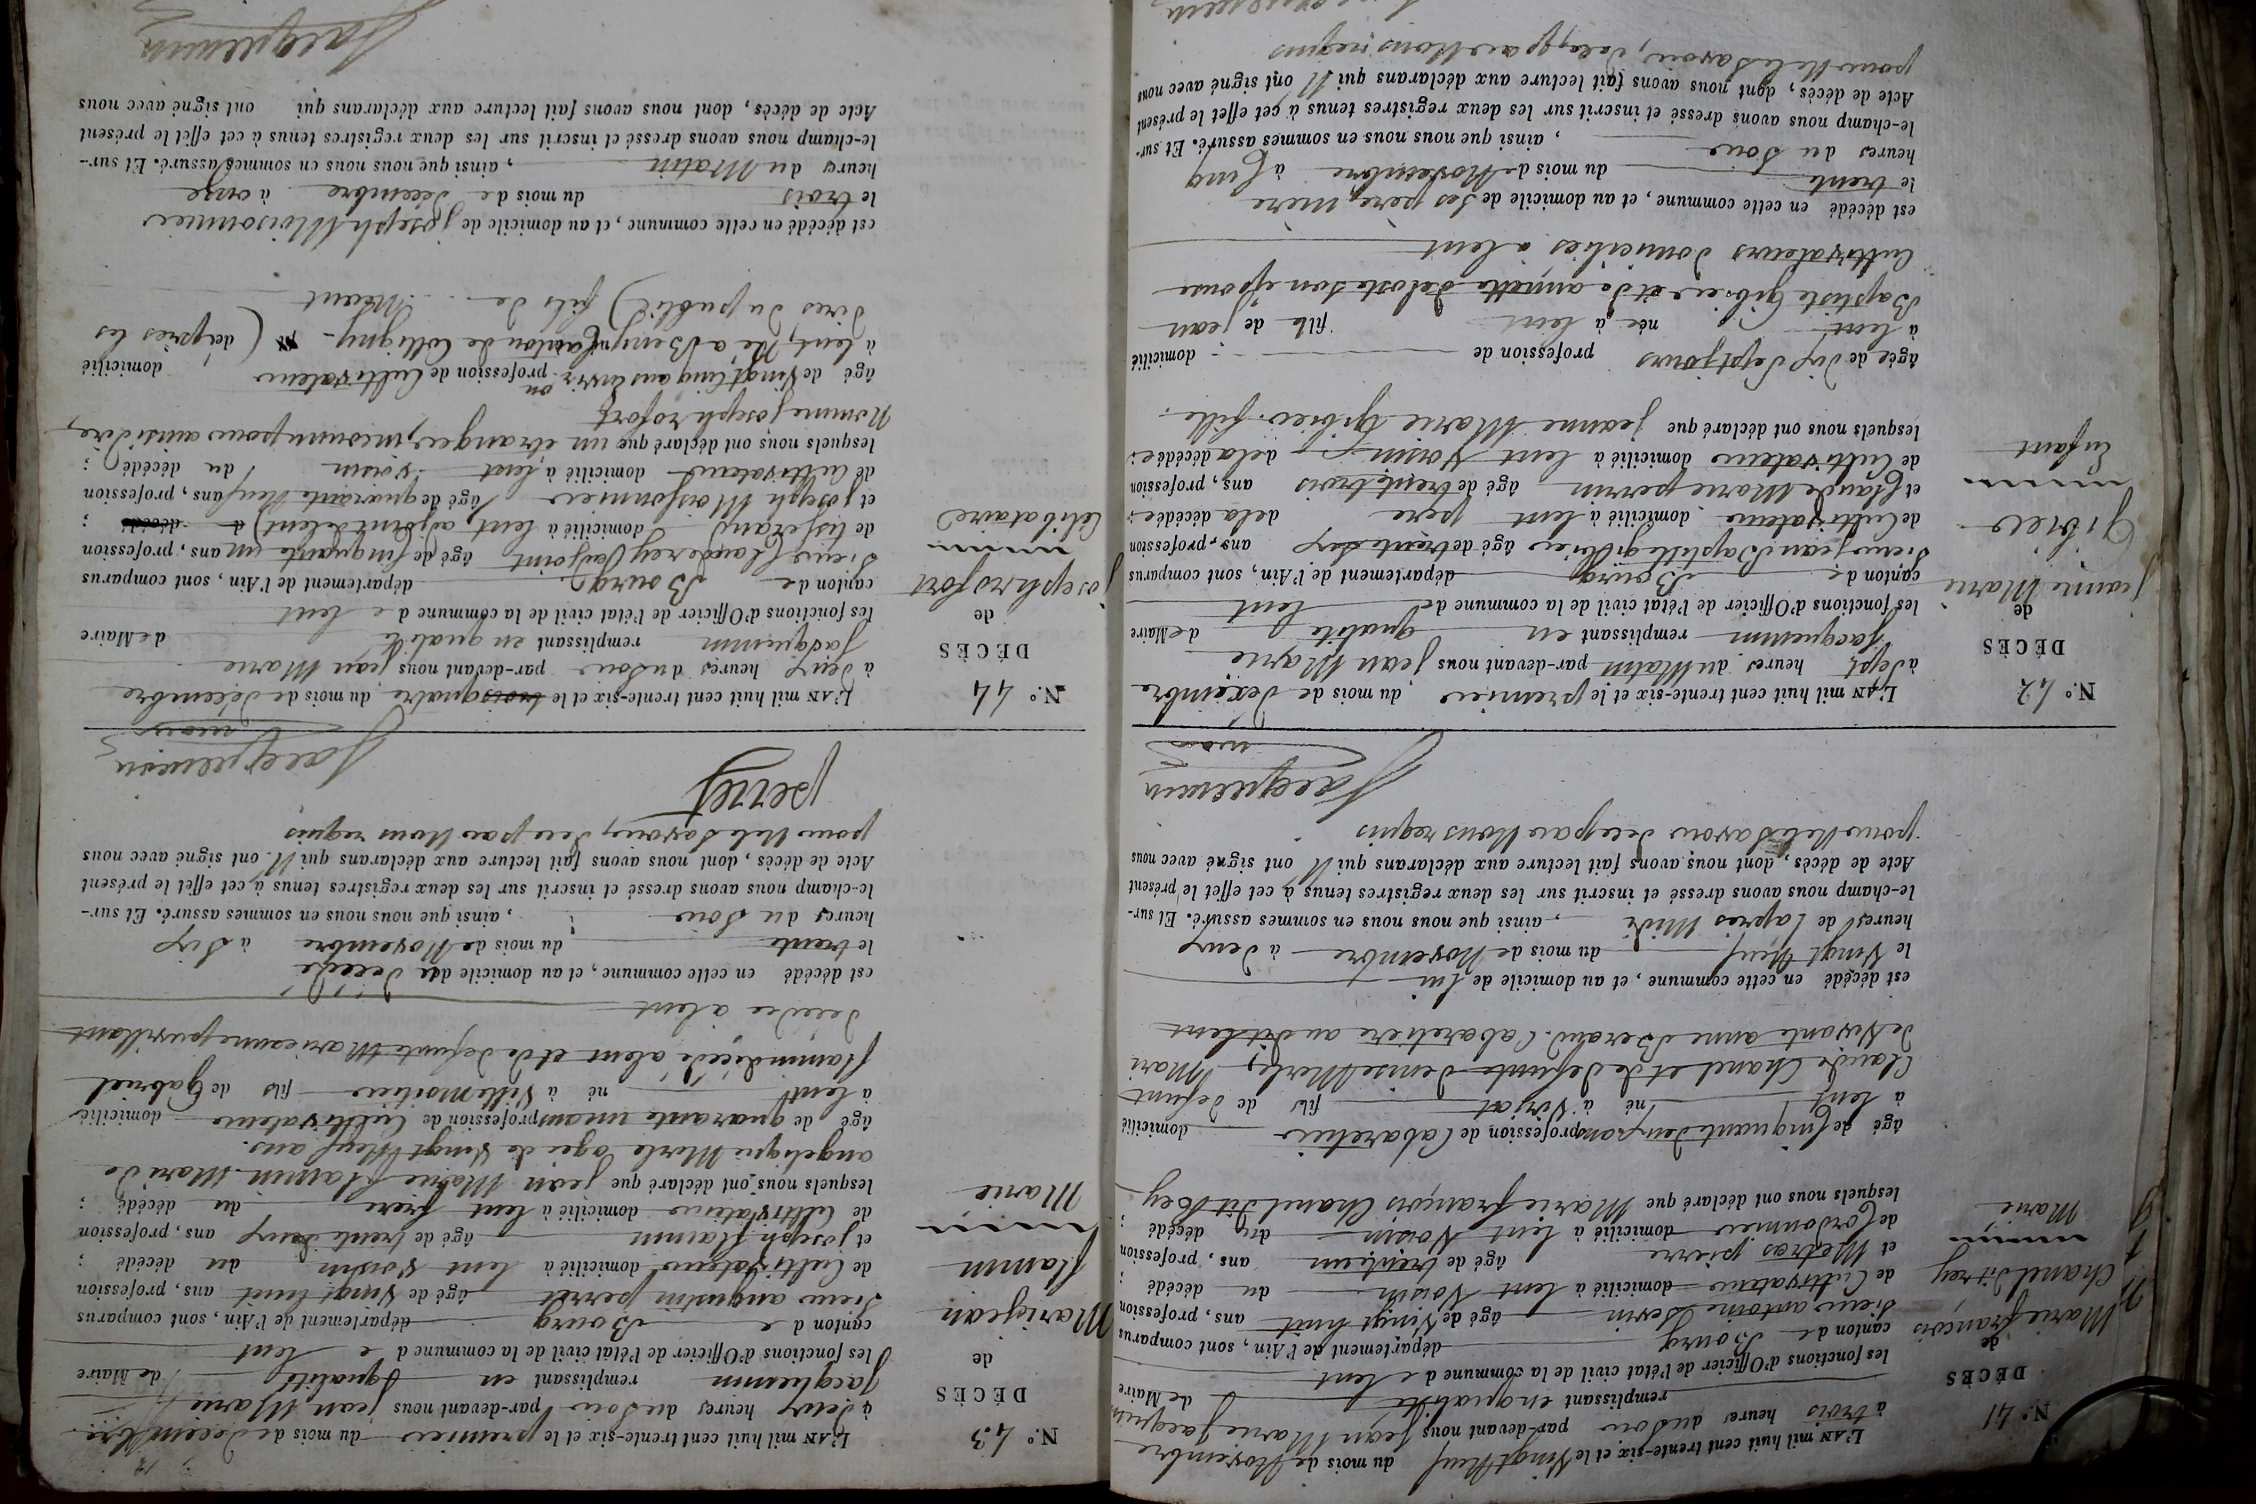 N.º 41
DÉCÈS
de
Marie françois
Chanel dit rey
Marié
L'AN mil huit cent trente-six et le Vingt Neuf du mois de Novembre
à trois heures du Soir par-devant nous jean Marie Jacquemin
remplissant en qualité de Maire
les fonctions d'Officier de l'état civil de la commune de lent
canton de Bourg département de l'Ain, sont comparus
Sieurs antoine âgé de Vingt huit ans, profession
de Cultivateur domicilié à lent Voisin du décédé ;
et Metras pierre âgé de trente un ans, profession
de Cordonnier domicilié à lent Voisin du décédé ;
lesquels nous ont déclaré que Marie françois Chanel dit Rey
âgé de Cinquante deux ans profession de Cabaretier domicilié
à lent né à fils de defunt
Claude Chanel et de defunte Denise Merle, Mari
de Vivante anne Beraud Cabaretiere au dit lent
est décédé en cette commune, et au domicile de lui
le Vingt Neuf du mois de Novembre à deux
heures de l'apres Midi, ainsi que nous nous en sommes assuré. Et sur-
le-champ nous avons dressé et inscrit sur les deux registres tenus à cet effet le présent
Acte de décès, dont nous avons fait lecture aux déclarans qui N ont signé avec nous
pour Ne le Savoir de ce par Nous requis
Jacquemin
maire
N.º 42
DÉCÈS
de
jeanne Marie
Gibier
Enfant
L'AN mil huit cent trente-six et le premier du mois de decembre
à Sept heures du Matin par-devant nous jean Marie
Jacquemin remplissant en qualité de Maire
les fonctions d'Officier de l'état civil de la commune de lent
canton de Bourg département de l'Ain, sont comparus
Sieurs jean Baptiste gibier âgé de trente six ans, profession
de Cultivateur domicilié à lent pere de la décédée ;
et Claude Marie perrin âgé de trente trois ans, profession
de Cultivateur domicilié à lent Voisin de la décédée ;
lesquels nous ont déclaré que jeanne Marie Gibier fille
âgée de dix Sept jours profession de domicilié
à lent née à lent fille de jean
Baptiste Gibier et de annette son épouse
Cultivateurs domiciliés à lent
est décédé en cette commune, et au domicile de Ses pere, Mere
le trente du mois de Novembre à Cinq
heures du Soir, ainsi que nous nous en sommes assuré. Et sur-
le-champ nous avons dressé et inscrit sur les deux registres tenus à cet effet le présent
Acte de décès, dont nous avons fait lecture aux déclarans qui N ont signé avec nous
pour Ne le Savoir, de ce par Nous requis
N.º 43
DÉCÈS
de
Mari jean
flamin
Marié
L'AN mil huit cent trente-six et le premier du mois de decembre
à deux heures du Soir par-devant nous jean Marie
Jacquemin remplissant en qualité de Maire
les fonctions d'Officier de l'état civil de la commune de lent
canton de Bourg département de l'Ain, sont comparus
Sieurs augustin perret âgé de Vingt huit ans, profession
de Cultivateur domicilié à lent voisin du décédé ;
et joseph flamin âgé de trente deux ans, profession
de Cultivateur domicilié à lent frere du décédé ;
lesquels nous ont déclaré que jean Marie flamin Mari de
angelique Merle agée de Vingt Neuf ans.
âgé de quarante un ans profession de Cultivateur domicilié
à lent né à Villemoitier fils de Gabriel
flamin décédé à lent et de defunte Marieanne
décédée à lent
est décédé en cette commune, et au domicile du décédé
le trente du mois de Novembre à Six
heures du Soir, ainsi que nous nous en sommes assuré. Et sur-
le-champ nous avons dressé et inscrit sur les deux registres tenus à cet effet le présent
Acte de décès, dont nous avons fait lecture aux déclarans qui N ont signé avec nous
pour Ne le Savoir, de ce par Nous requis
perret
Jacquemin
maire
N.º 44
DÉCÈS
de
joseph rofort
Celibataire
L'AN mil huit cent trente-six et le trois quatre du mois de décembre
à deux heures du Soir par-devant nous jean Marie
Jacquemin remplissant en qualité de Maire
les fonctions d'Officier de l'état civil de la commune de lent
canton de Bourg département de l'Ain, sont comparus
Sieurs Claude rey adjoint âgé de Cinquante un ans, profession
de tisserand domicilié à lent, adjoint de lent) d décédé ;
et joseph Moissonnier âgé de quarante Neuf ans, profession
de Cultivateur domicilié à lent voisin du décédé ;
lesquels nous ont déclaré que un étranger, inconnu pour ainsi dire,
Nommé joseph rofort
âgé de Vingt Cinq ans environ profession de Cultivateur domicilié
à lent, Né à Beny Canton de Colligny (d'après les
dires du public) fils de Néant
est décédé en cette commune, et au domicile de joseph Moissonnier
le trois du mois de décembre à onze
heures du Matin, ainsi que nous nous en sommes assuré. Et sur-
le-champ nous avons dressé et inscrit sur les deux registres tenus à cet effet le présent
Acte de décès, dont nous avons fait lecture aux déclarans qui ont signé avec nous
Jacquemin